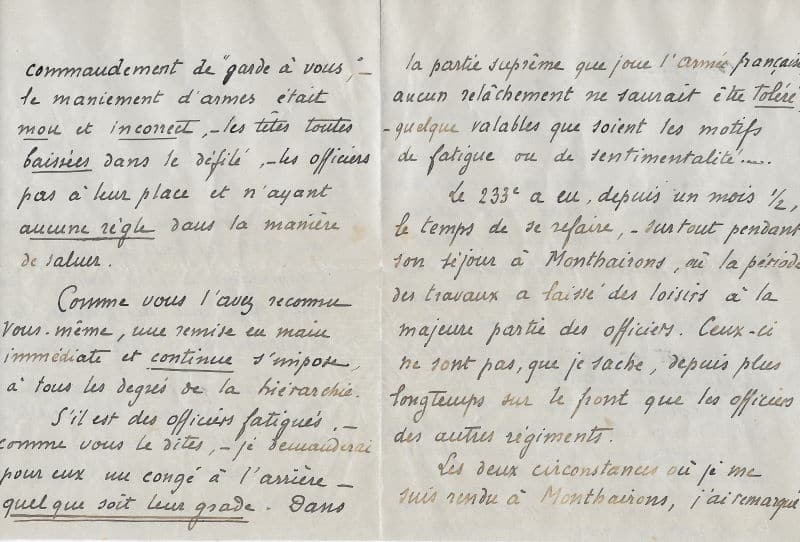 commandement de "garde à vous", -
le maniement d'armes était
mou et incorrect, - les têtes toutes
baissées dans le défilé, - les officiers
pas à leur place et n'ayant
aucune règle dans la manière
de saluer.
Comme vous l'avez reconnu
vous-même, une remise en main
immédiate et continue s'impose,
à tous les degrés de la hiérarchie.
S'il est des officiers fatigués, -
comme vous le dites, - je demanderai
pour eux un congé à l'arrière -
quel que soit leur grade. Dans
la partie suprême que joue l'armée française
aucun relâchement ne saurait être toléré
- quelque valables que soient les motifs
de fatigue ou de sentimentalité....
Le 233e a eu, depuis un mois 1/2,
le temps de se refaire, - surtout pendant
son séjour à Monthairons, où la période
des travaux a laissé des loisirs à la
majeure partie des officiers. Ceux-ci
ne sont pas, que je sache, depuis plus
longtemps sur le front que les officiers
des autres régiments.
Les deux circonstances où je me
suis rendu à Monthairons, j'ai remarqué